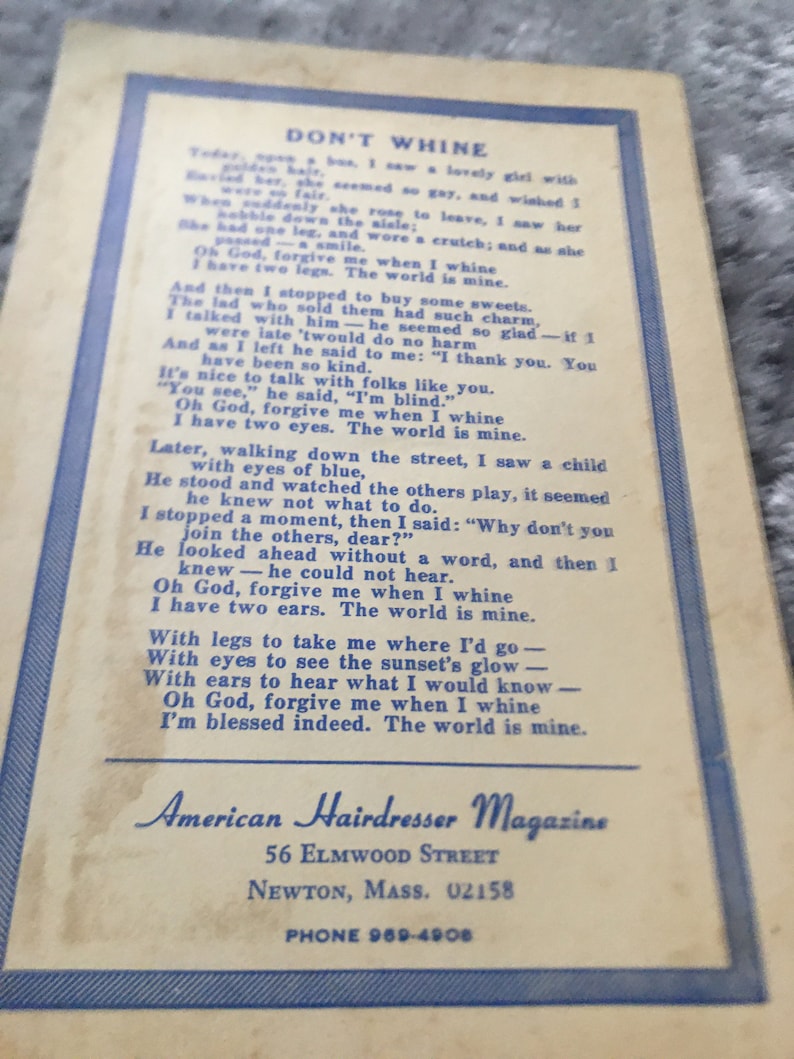 DON'T WHINE
Today, upon a bus, I saw a lovely girl with
golden hair,
Envied her, she seemed so gay, and wished I
were so fair.
When suddenly she rose to leave, I saw her
hobble down the aisle;
She had one leg, and wore a crutch; and as she
passed — a smile.
Oh God, forgive me when I whine
I have two legs. The world is mine.
And then I stopped to buy some sweets.
The lad who sold them had such charm,
I talked with him — he seemed so glad — if I
were late 'twould do no harm
And as I left he said to me: "I thank you. You
have been so kind.
It's nice to talk with folks like you.
"You see," he said, "I'm blind."
Oh God, forgive me when I whine
I have two eyes. The world is mine.
Later, walking down the street, I saw a child
with eyes of blue,
He stood and watched the others play, it seemed
he knew not what to do.
I stopped a moment, then I said: "Why don't you
join the others, dear?"
He looked ahead without a word, and then I
knew — he could not hear.
Oh God, forgive me when I whine
I have two ears. The world is mine.
With legs to take me where I'd go —
With eyes to see the sunset's glow —
With ears to hear what I would know —
Oh God, forgive me when I whine
I'm blessed indeed. The world is mine.
American Hairdresser Magazine
56 ELMWOOD STREET
NEWTON, MASS. 02158
PHONE 969-4906